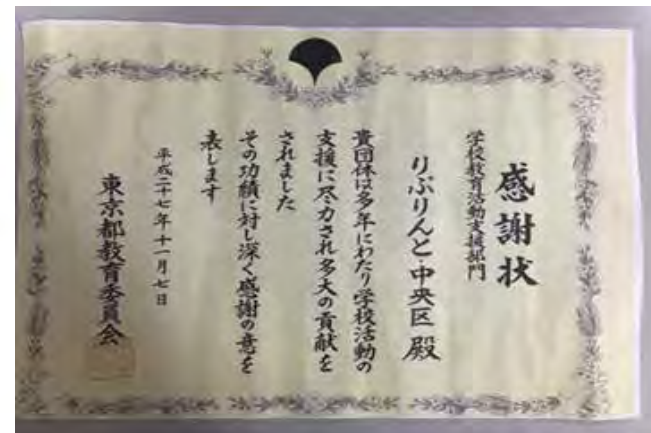 感謝状
学校教育活動支援部門
りぶりんと・中央区 殿
貴団体は多年にわたり学校活動の
支援に尽力され多大の貢献を
されました
その功績に対し深く感謝の意を
表します
平成二十七年十一月七日
東京都教育委員会